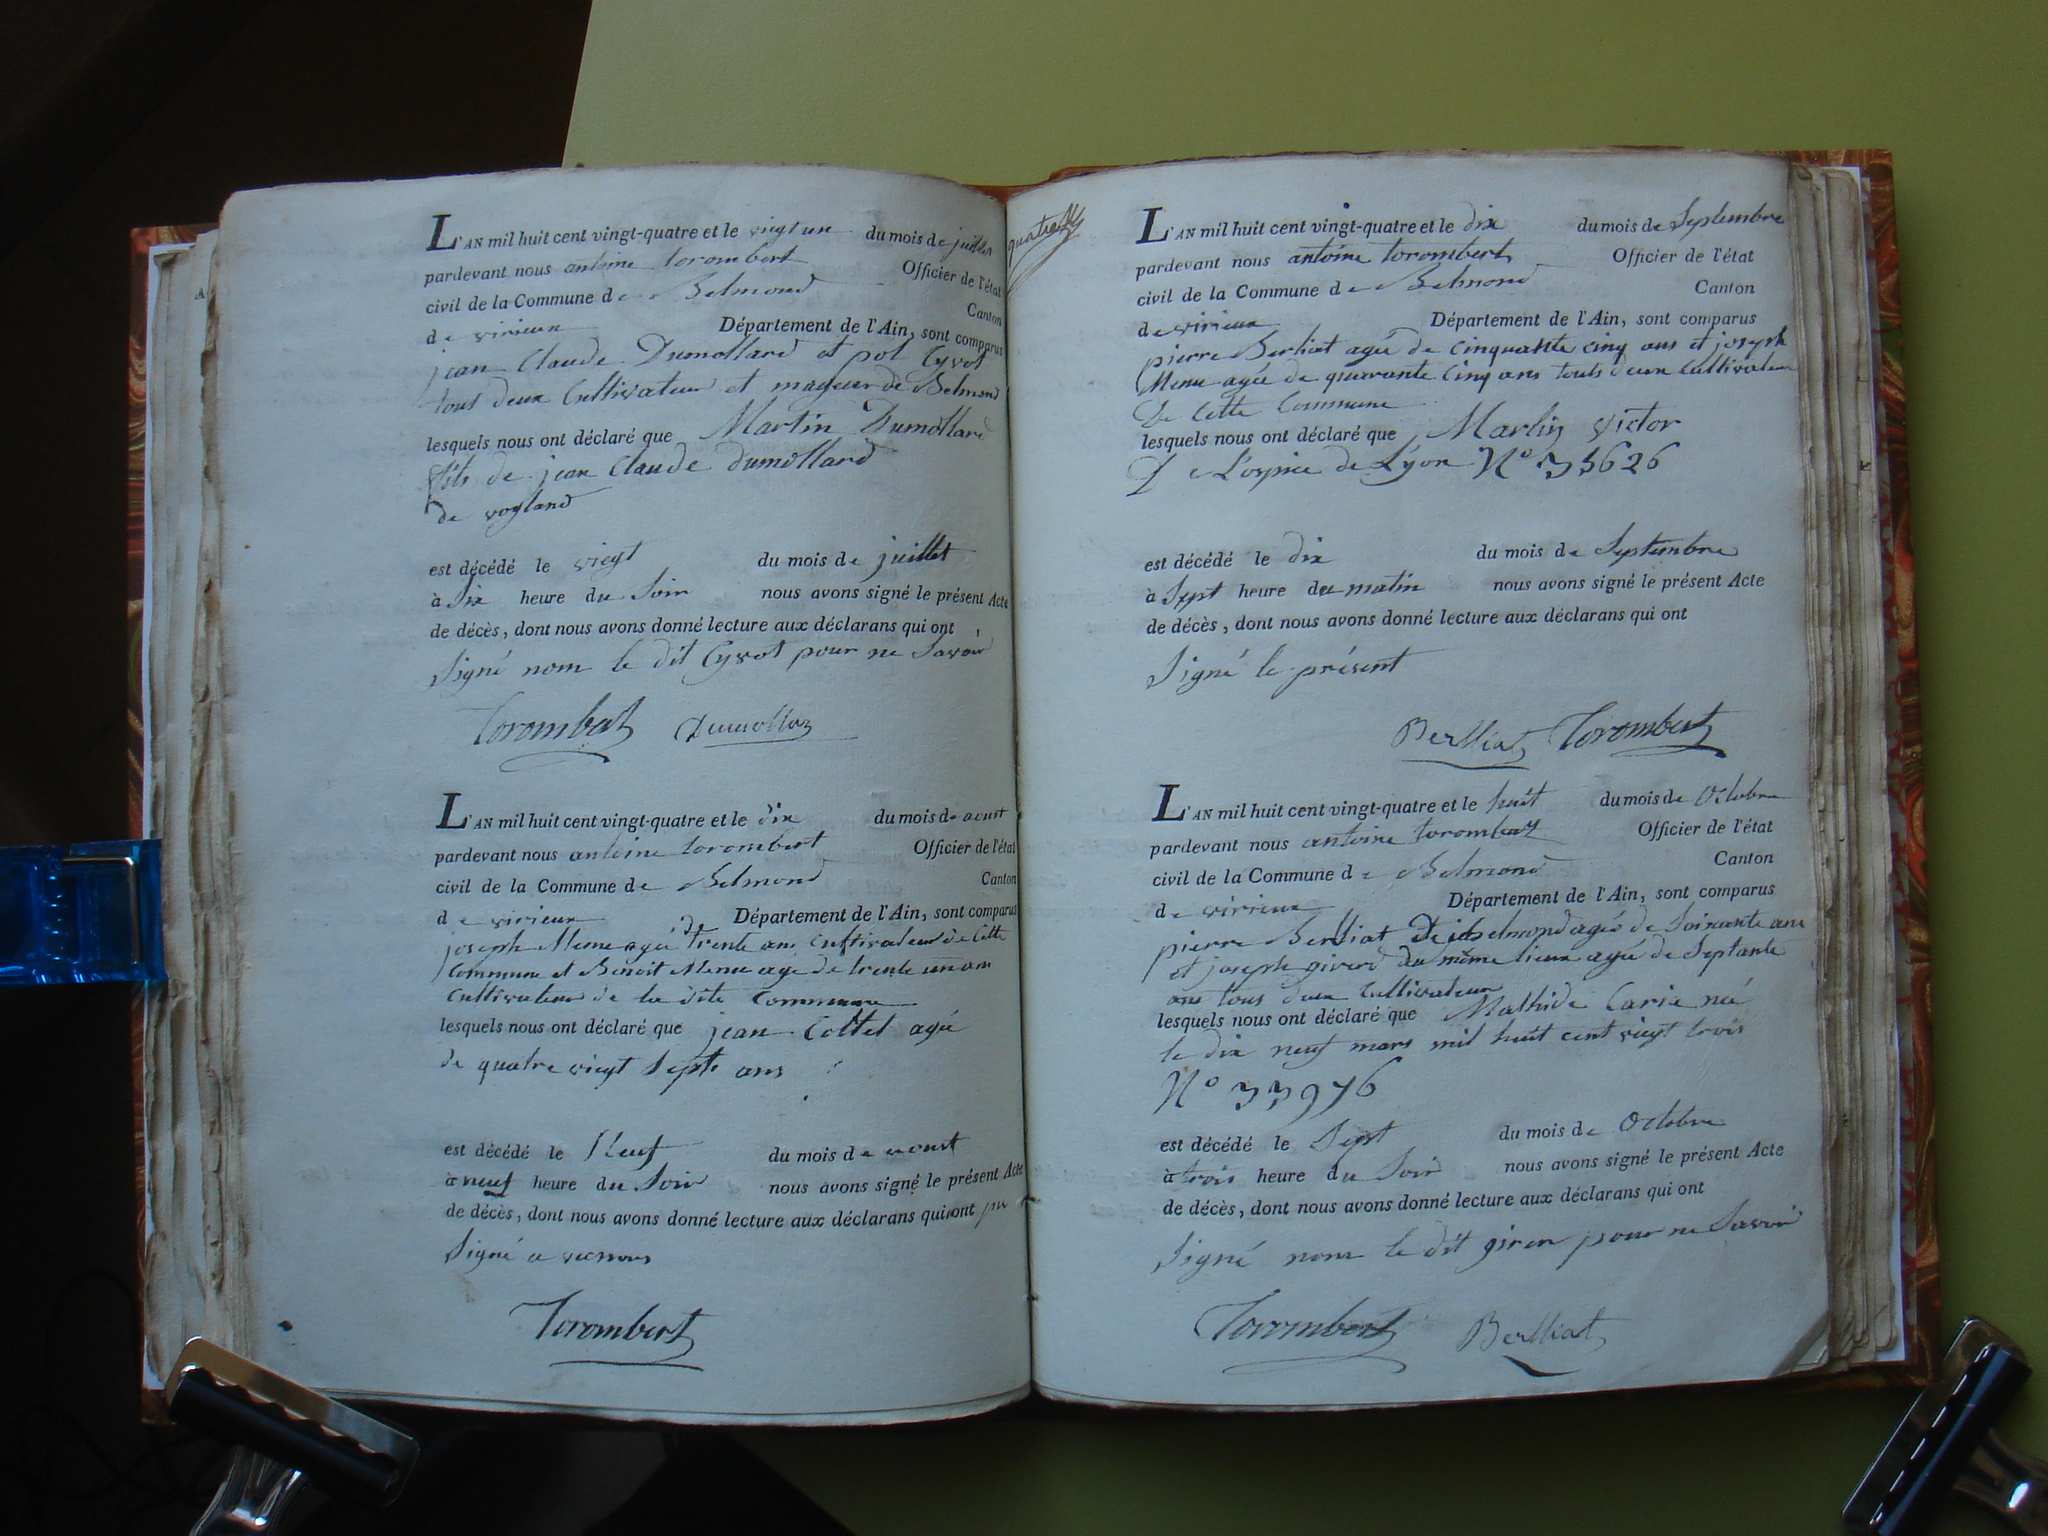 L'AN mil huit cent vingt-quatre et le vingt un du mois de juillet
pardevant nous antoine torombert Officier de l'état
civil de la Commune de Belmond Canton
de virieux Département de l'Ain, sont comparus
jean Claude Dumollard et pol Cyvot
tous deux Cultivateur et mageur de Belmond
lesquels nous ont déclaré que Martin Dumollard
fils de jean Claude dumollard
de vogland
est décédé le viegt du mois de juillet
à Six heure du Soir nous avons signé le présent Acte
de décès, dont nous avons donné lecture aux déclarans qui ont
Signé nom le dit Cyvot pour ne Savoir
Torombert Dumollar
L'AN mil huit cent vingt-quatre et le dix du mois de aoust
pardevant nous antoine torombert Officier de l'état
civil de la Commune de Belmond Canton
de virieux Département de l'Ain, sont comparus
joseph Meme agée de trente ans Cultivateur de Cette
Commune et Benoit Menu age de trente un an
Cultivateur de la dite Commune
lesquels nous ont déclaré que jean Cottet agée
de quatre viegt Sept ans
est décédé le Neuf du mois de aoust
à neuf heure du Soir nous avons signé le présent Acte
de décès, dont nous avons donné lecture aux déclarans qui ont
Signé a vecnous
Torombert
quatre
L'AN mil huit cent vingt-quatre et le dix du mois de Septembre
pardevant nous antoine torombert Officier de l'état
civil de la Commune de Belmond Canton
de virieux Département de l'Ain, sont comparus
pierre Berliat agée de cinquante cinq ans et joseph
Menu agée de quarante Cinq ans touts deux Cultivateur
De Cette Commune
lesquels nous ont déclaré que Martin victor
L'ospice de Lyon N° 35626
est décédé le dix du mois de Septembre
à Sept heure du matin nous avons signé le présent Acte
de décès, dont nous avons donné lecture aux déclarans qui ont
Signé le présent
Berlliat Torombert
L'AN mil huit cent vingt-quatre et le huit du mois de Octobre
pardevant nous antoine torombert Officier de l'état
civil de la Commune de Belmond Canton
de virieux Département de l'Ain, sont comparus
pierre Berliat De belmond agée de Soixante ans
et joseph giverd du même lieux agée de Septante
ans tous deux Cultivateur
lesquels nous ont déclaré que Mathide Carie neé
le dix neuf mars mil huit cent viegt trois
N° 33976
est décédé le Sept du mois de Octobre
à trois heure du Soir nous avons signé le présent Acte
de décès, dont nous avons donné lecture aux déclarans qui ont
Signé nom le dit giver pour ne Savoir
Torombert Berlliat